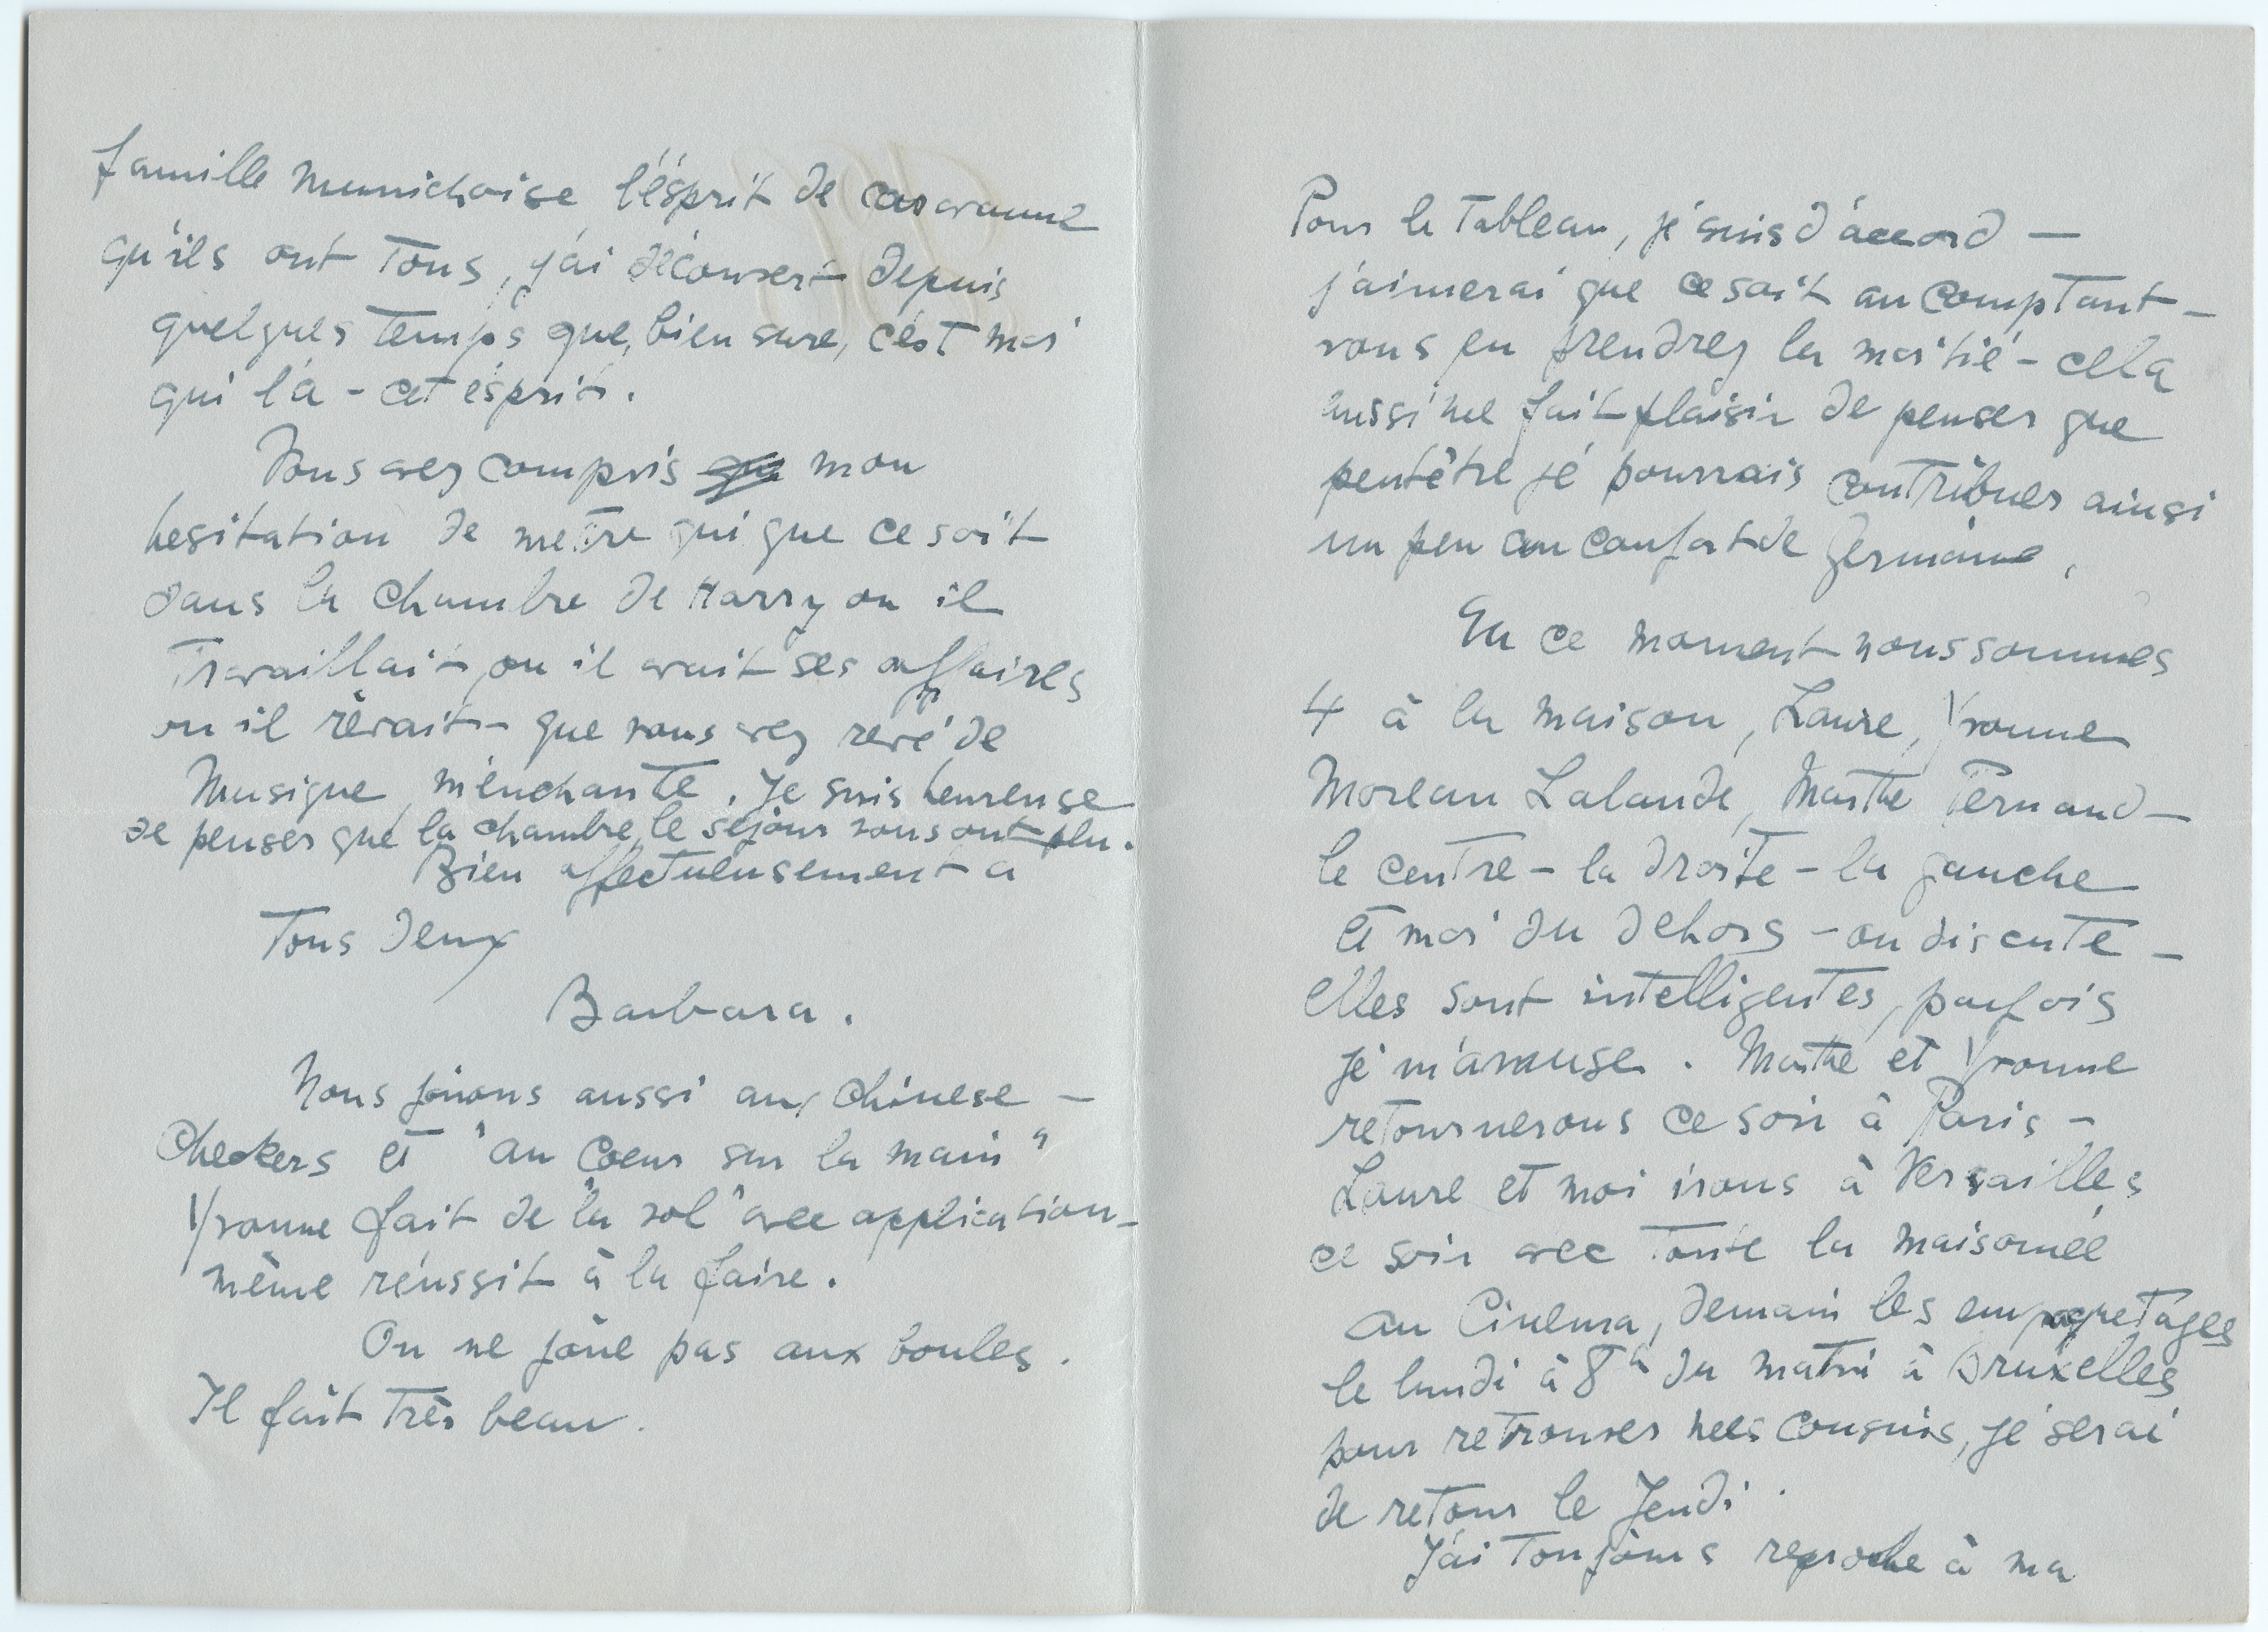 Pour le Tableau, je suis d'accord —
j'aimerai que ce soit au comptant —
vous en prendrez la moitié – cela
aussi me fait plaisir de penser que
peutêtre je pourrais contribuer ainsi
un peu au confort de Germaine.
En ce moment nous sommes
4 à la maison, Laure, Yvonne
Moreau Lalande, Marthe Pernaud —
le centre – la droite – la gauche
et moi du dehors – on discute —
Elles sont intelligentes, parfois
je m'amuse. Marthe et Yvonne
retournerons ce soir à Paris –
Laure et moi irons à Versailles
ce soir avec toute la maisonée
au Cinema, demain les empaquetages
le lundi à 8h du matin à Bruxelles
pour retrouver mes cousins, je serai
de retour le Jeudi.
J'ai Toujours reproche à ma
famille munichoise l'ésprit de caravanne
qu'ils ont Tous, j'ai découvert depuis
quelques temps que, bien sure, c'est moi
qui l'a – cet ésprit.
Vous avez compris mon
hesitation de mettre qui que ce soit
dans la chambre de Harry ou il
Travaillait, ou il avait ses affaires
ou il rêvait – que vous avez revé de
Musique, m'enchante. Je suis heureuse
de penser que la chambre, le séjour vous ont plu.
Bien affectueusement a
Tous Deux
Barbara.
Nous joùons aussi aux chinese –
Checkers et "au Coeur sur la main"
Yvonne fait de "la vol" avec application –
même réussit à la faire.
On ne joùe pas aux boules.
Il fait Très beau.